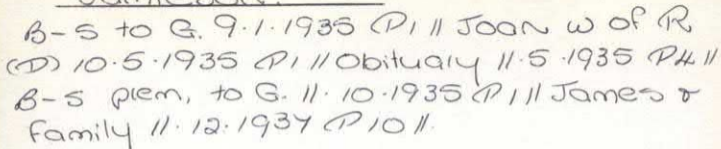 B-S to G. 9.1.1935 P1 // Joan w of R
(D) 10.5.1935 P1 // Obituary 11.5.1935 P4 //
B-S prem, to G. 11.10.1935 P1 // James &
family 11.12.1937 P10 //.